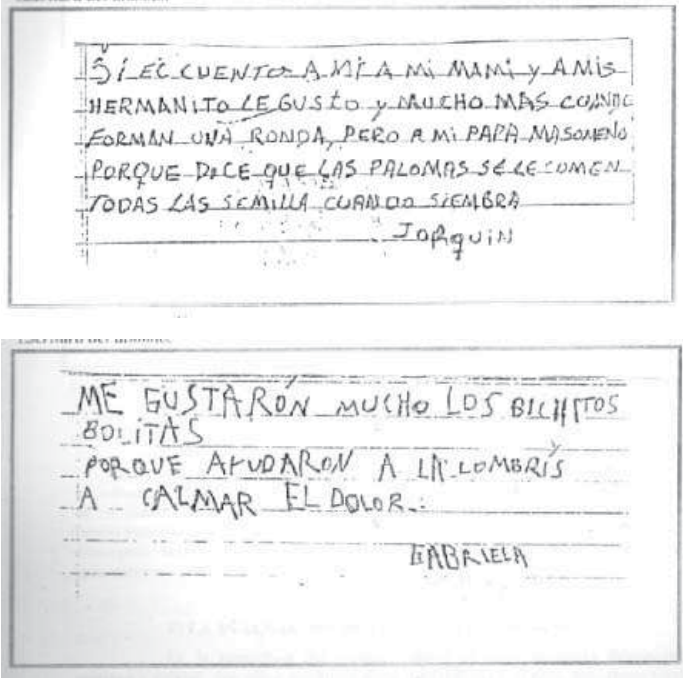 SI EL CUENTO A MI A MI MAMI Y A MIS
HERMANITO LE GUSTO Y MUCHO MAS CUANDO
FORMAN UNA RONDA, PERO A MI PAPA MASOMENO
PORQUE DICE QUE LAS PALOMAS SE LE COMEN
TODAS LAS SEMILLA CUANDO SIEMBRA
JOAQUIN
ME GUSTARÓN MUCHO LOS BICHITOS
BOLITAS
PORQUE AYUDARON A LA LOMBRÍS
A CALMAR EL DOLOR.
GABRIELA